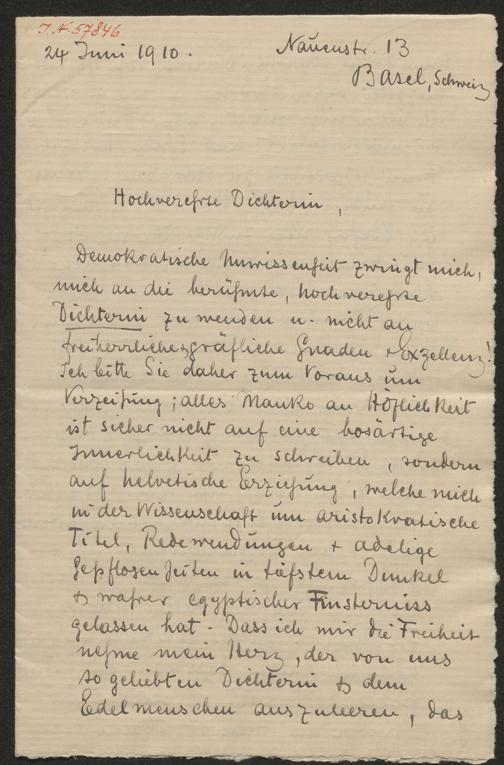 I.N. 57846
24 Juni 1910.
Nauenstr. 13
Basel, Schweiz
Hochverehrte Dichterin,
Demokratische Unwissenheit zwingt mich,
mich an die berühmte, hochverehrte
Dichterin zu wenden u. nicht an
freiherrliche & gräfliche Gnaden & Exzellenz!
Ich bitte Sie daher zum Voraus um
Verzeihung; alles Manko an Höflichkeit
ist sicher nicht auf eine bosärtige
Innerlichkeit zu schreiben, sondern
auf helvetische Erziehung, welche mich
in der Wissenschaft um aristokratische
Titel, Redewendungen + adelige
Gepflogenheiten in tiefstem Dunkel
& wahrer egyptischer Finsterniss
gelassen hat. Dass ich mir die Freiheit
nehme mein Herz, der von uns
so geliebten Dichterin & dem
Edelmenschen auszuleeren, das